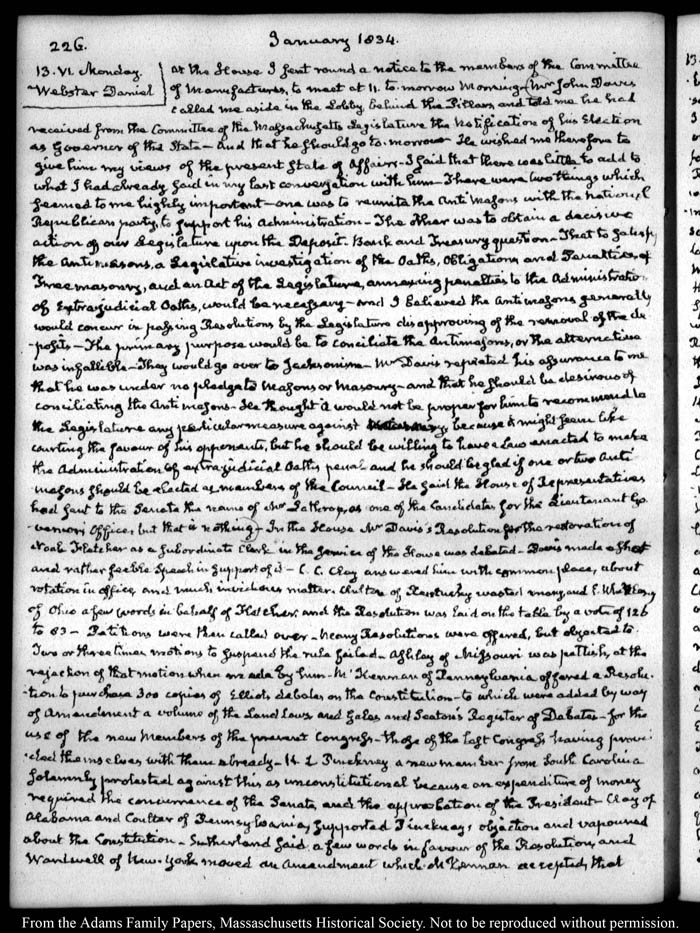 226.
January 1834.
13. VI. Monday.
Webster Daniel
At the House I sent round a notice to the members of the Committee
of Manufactures, to meet at 11. to-morrow Morning. Mr John Davis
called me aside in the Lobby behind the Pillars, and told me he had
received from the Committee of the Massachusetts Legislature the notification of his Election
as Governor of the State – And that he should go to-morrow – He wished me therefore to
give him my views of the present State of Affairs – I said that there was little to add to
what I had already said in my last conversation with him – There were two things which
seemed to me highly important – one was to reunite the Antimasons with the National
Republican party, to support his Administration – The other was to obtain a decisive
action of our Legislature upon the Deposit. Bank and Treasury question – That to satisfy
the Antimasons, a Legislative investigation of the Oaths, Obligations and Penalties, of
Freemasonry, and an Act of the Legislature, annexing penalties to the Administration
of Extrajudicial Oaths, would be necessary – and I believed the Antimasons generally
would concur in passing Resolutions by the Legislature disapproving of the removal of the de-
posits – The primary purpose would be to conciliate the Antimasons, or the alternative
was infallible – They would go over to Jacksonism – Mr Davis repeated his assurance to me
that he was under no pledge to Masons or Masonry – and that he should be desirous of
conciliating the Antimasons – He thought it would not be proper for him to recommend to
the Legislature any particular measure against because it might seem like
courting the favour of his opponents, but he should be willing to have a Law enacted to make
the Administration of extrajudicial Oaths penal and he should be glad if one or two Anti-
masons should be elected as members of the Council – He said the House of Representatives
had sent to the Senate the name of Mr Lathrop, as one of the Candidates for the Lieutenant Go-
vernor's Office, but that is nothing – In the House Mr Davis's Resolution for the restoration of
Noah Fletcher as a subordinate Clerk in the service of the House was debated – Davis made a short
and rather feeble Speech in support of it – C. C. Clay answered him with common place, about
rotation in office, and much invidious matter. Chilton of Kentucky wasted many, and E. Whittlesey
of Ohio a few words in behalf of Fletcher, and the Resolution was laid on the table by a vote of 126
to 83 – Petitions were then called over – Many Resolutions were offered, but objected to.
Two or three times motions to suspend the rule failed – Ashley of Missouri was pettish, at the
rejection of that motion when made by him – McKennan of Pennsylvania offered a Resolu-
tion to purchase 300 copies of Elliot's debates on the Constitution – to which were added by way
of Amendment a volume of the Land Laws and Gales and Seaton's Register of Debates – for the
use of the new Members of the present Congress – those of the last Congress having provi-
ded themselves with them already – H. L. Pinckney a new member from South Carolina
solemnly protested against this as unconstitutional because an expenditure of money
required the concurrence of the Senate, and the approbation of the President – Clay of
Alabama and Coulter of Pennsylvania, supported Pinckney's objection and vapoured
about the Constitution – Sutherland said a few words in favour of the Resolution, and
Wardwell of New-York moved an Amendment which McKennan accepted, that
From the Adams Family Papers, Massachusetts Historical Society. Not to be reproduced without permission.